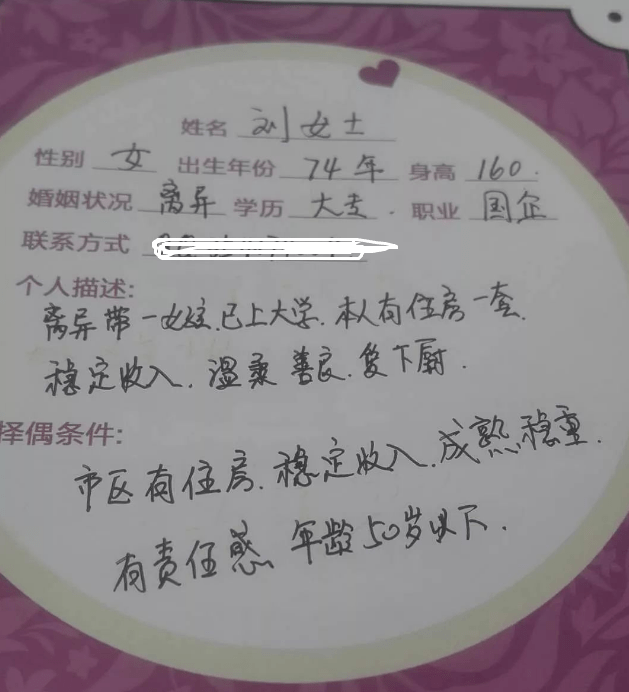 姓名 刘女士
性别 女 出生年份 74年 身高 160.
婚姻状况 离异 学历 大专. 职业 国企
联系方式
个人描述:
离异带一女孩.已上大学.本人有住房一套.
稳定收入.温柔善良.爱下厨.
择偶条件:
市区有住房.稳定收入.成熟稳重.
有责任感 年龄50岁以下.